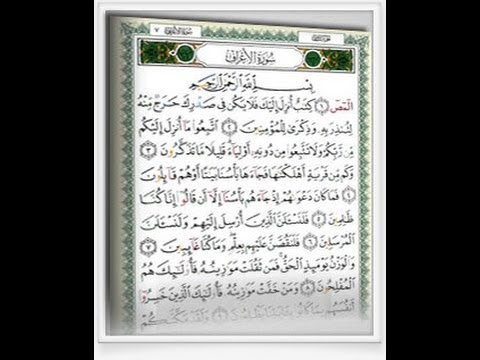 سُورَةُ الأَعْرَافِ ٧
سُورَةُ الأَعْرَافِ
بِسْمِ اللَّهِ الرَّحْمَٰنِ الرَّحِيمِ
الٓمٓصٓ ١ كِتَٰبٌ أُنزِلَ إِلَيْكَ فَلَا يَكُن فِى صَدْرِكَ حَرَجٌ مِّنْهُ
لِتُنذِرَ بِهِۦ وَذِكْرَىٰ لِلْمُؤْمِنِينَ ٢ ٱتَّبِعُوا۟ مَآ أُنزِلَ إِلَيْكُم
مِّن رَّبِّكُمْ وَلَا تَتَّبِعُوا۟ مِن دُونِهِۦٓ أَوْلِيَآءَ قَلِيلًا مَّا تَذَكَّرُونَ ٣
وَكَم مِّن قَرْيَةٍ أَهْلَكْنَٰهَا فَجَآءَهَا بَأْسُنَا بَيَٰتًا أَوْ هُمْ قَآئِلُونَ
٤ فَمَا كَانَ دَعْوَىٰهُمْ إِذْ جَآءَهُم بَأْسُنَآ إِلَّآ أَن قَالُوٓا۟ إِنَّا كُنَّا
ظَٰلِمِينَ ٥ فَلَنَسْـَٔلَنَّ ٱلَّذِينَ أُرْسِلَ إِلَيْهِمْ وَلَنَسْـَٔلَنَّ
ٱلْمُرْسَلِينَ ٦ فَلَنَقُصَّنَّ عَلَيْهِم بِعِلْمٍ وَمَا كُنَّا غَآئِبِينَ ٧
وَٱلْوَزْنُ يَوْمَئِذٍ ٱلْحَقُّ فَمَن ثَقُلَتْ مَوَٰزِينُهُۥ فَأُو۟لَٰٓئِكَ هُمُ
ٱلْمُفْلِحُونَ ٨ وَمَنْ خَفَّتْ مَوَٰزِينُهُۥ فَأُو۟لَٰٓئِكَ ٱلَّذِينَ خَسِرُوٓا۟
أَنفُسَهُم بِمَا كَانُوا۟ بِـَٔايَٰتِنَا يَظْلِمُونَ ٩ وَلَقَدْ مَكَّنَّٰكُمْ